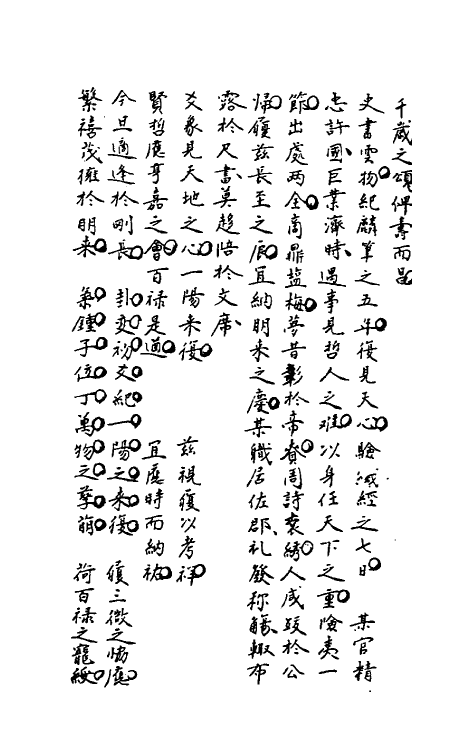 千歲之頌俾壽而昌
史書雲物紀麟筭之五年復見天心驗緘經之七日　某官精
忠許國巨業濟時遇事見哲人之難以身任天下之重險夷一
節出處两全商鼎鹽梅夢昔彰於帝賚周詩衮綉人咸跂於公
歸履兹長至之辰宜納明来之慶某職居佐郡礼發称觴輙布
露於尺書莫趍陪於文席
爻象見天地之心一陽来復　　兹視履以考祥
賢哲應亨嘉之會百禄是遒　　宜應時而納祐
今旦適逢於剛長　卦爻初爻紀一陽之来復　履三微之恊應
繁禧茂擁於明来　氣鍾子位丁萬物之孳萌　荷百禄之寵綏